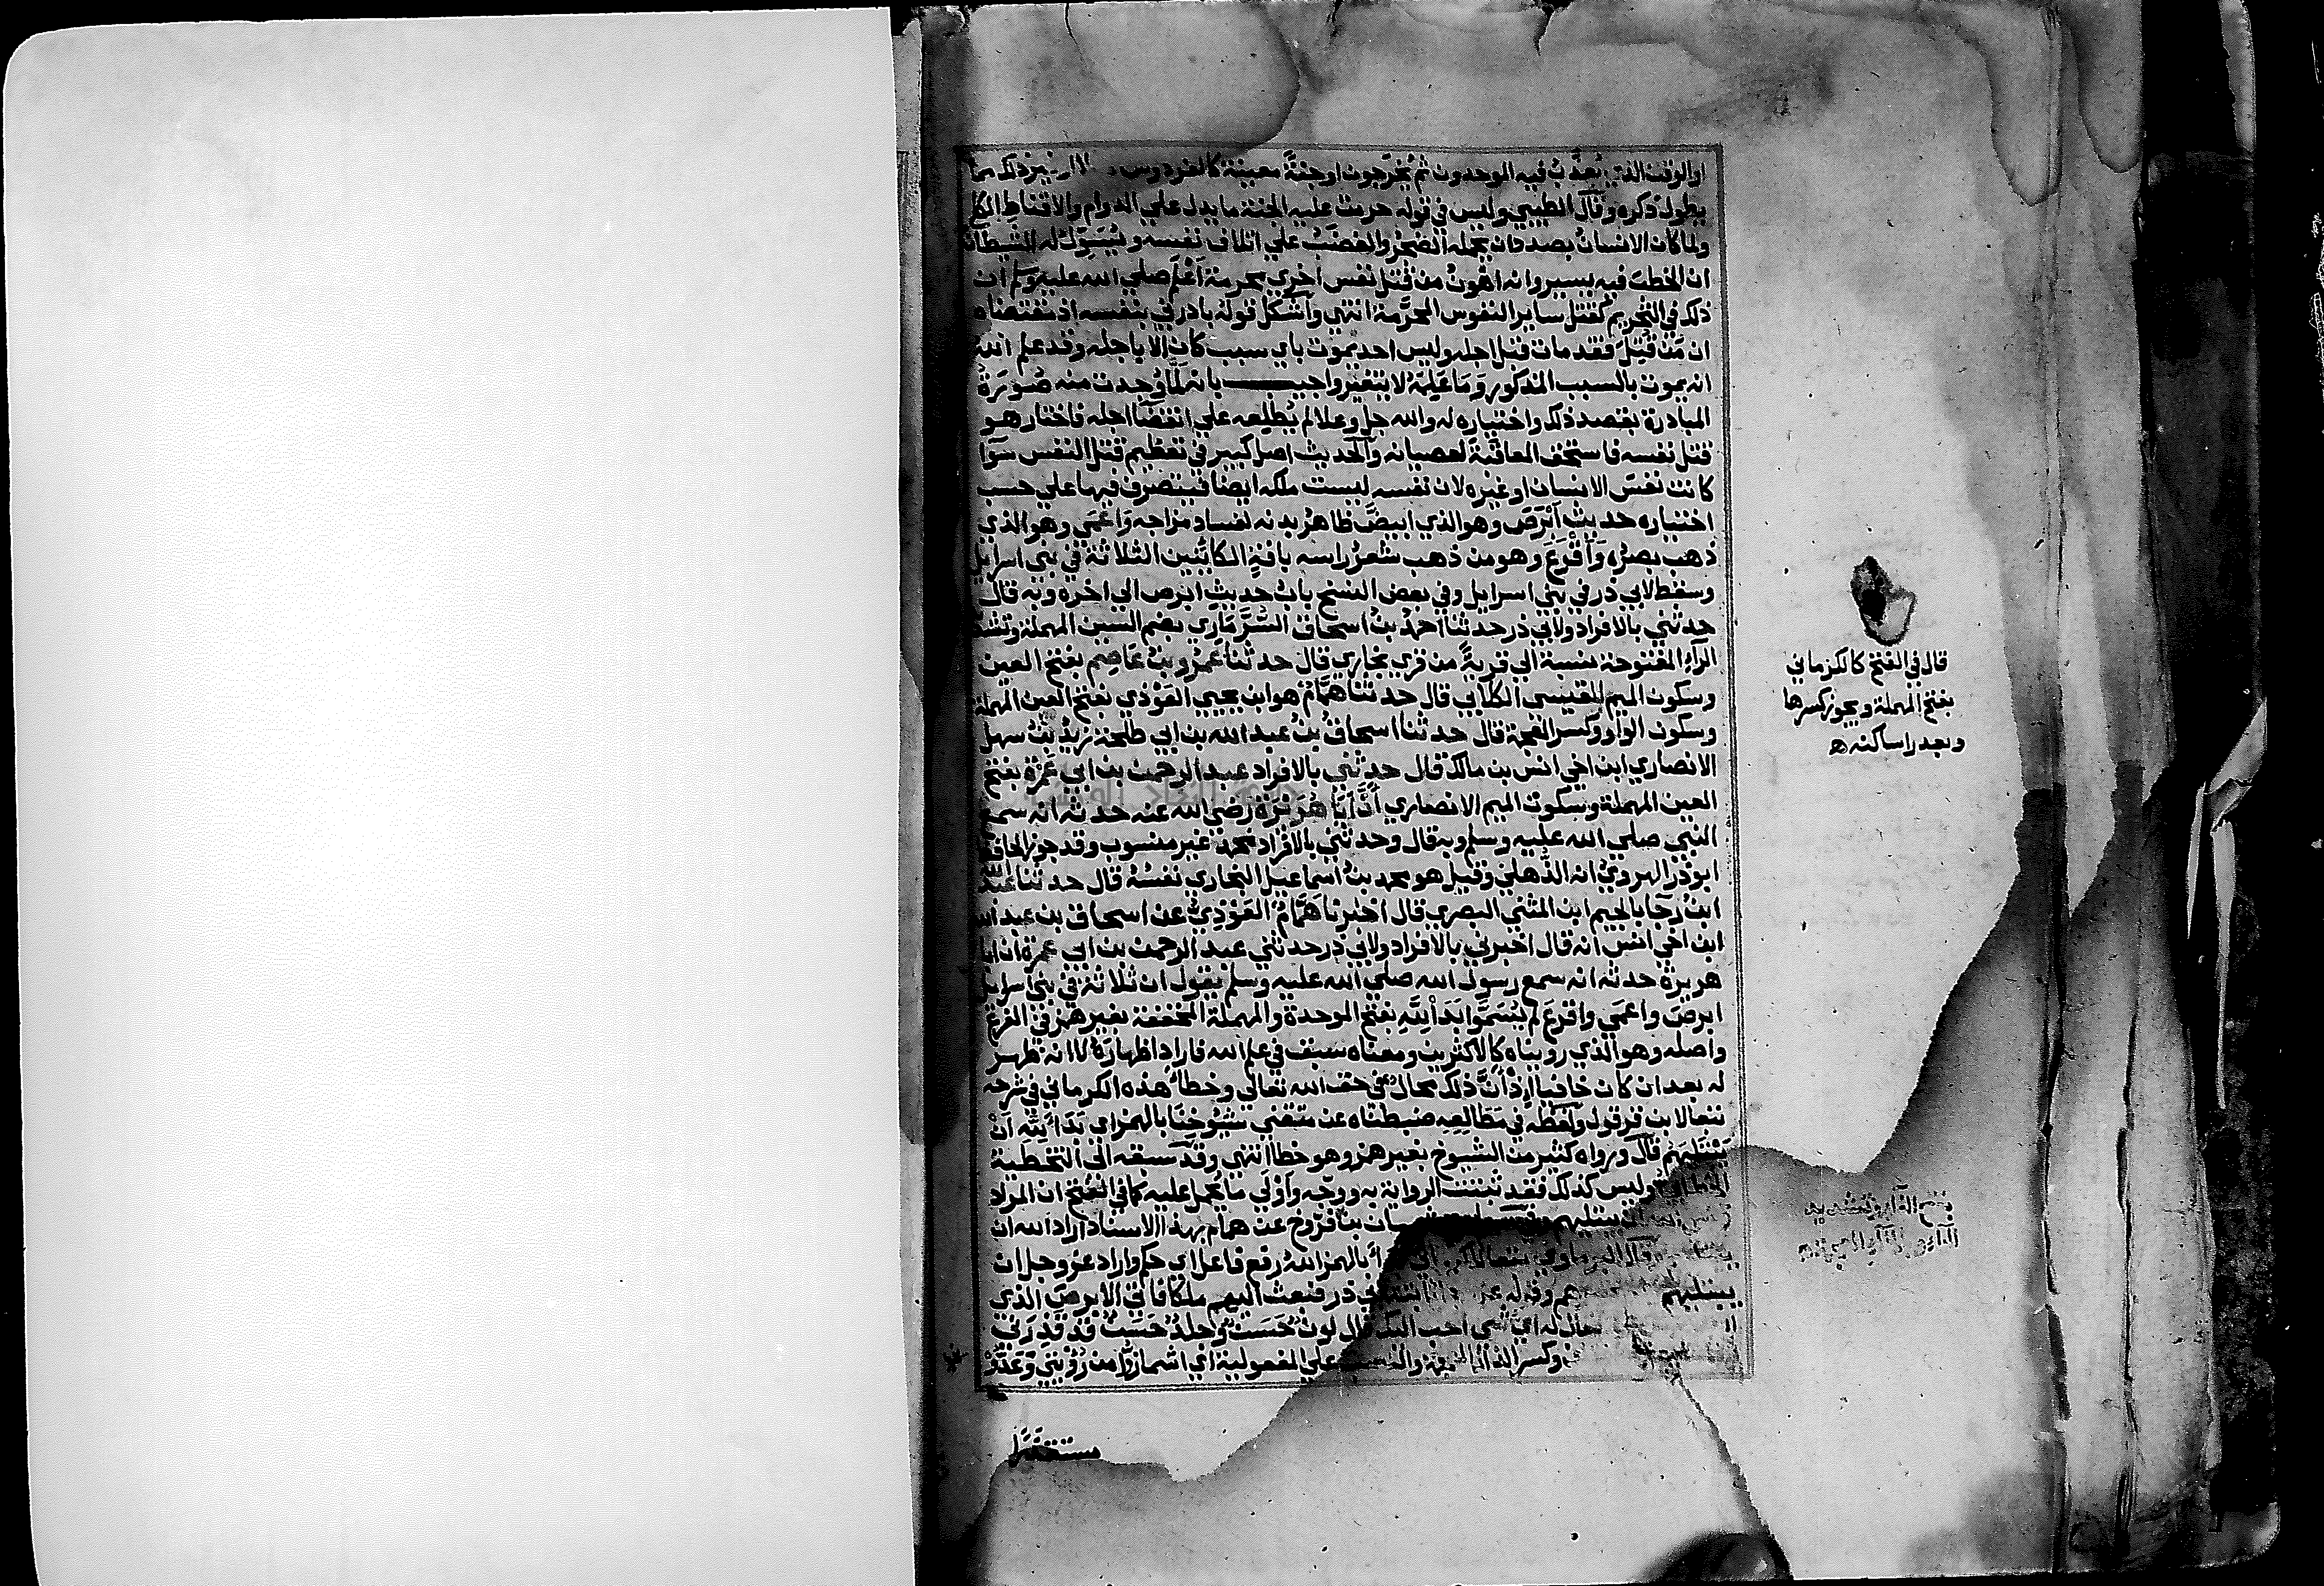 او الوقت الذي يُعذَّب فيه الموحدون ثم يُخرَجون او جنةً معينة كالفردوس ذلك مما
يطول ذكره وقال الطيبي وليس في قوله حرمت عليه الجنة ما يدل علي الدوام والاقناط الكلي
ولما كان الانسان بصدد ان يحمله الضجر والغضب علي اتلاف نفسه ويسوّل له الشيطان
ان الخطب فيه يسير وانه اهون من قتل نفس اخري محرمة اعلم صلي الله عليه وسلم ان
ذلك في التحريم كقتل ساير النفوس المحرَّمة انتهي واشكل قوله بادرني بنفسه اذ مقتضاه
ان مَن قُتِلَ فقد مات قبل اجله وليس احد يموت باي سبب كان الا باجله وقد علم الله
انه يموت بالسبب المذكور وما علمه لا يتغير واجيب بانه لما وُجدت منه صُورَةُ
المبادرة بقصد ذلك واختياره له والله جل وعلا لم يُطلعه علي انقضا اجله فاختار هو
قتل نفسه فاستحق المعاقبة لعصيانه والحديث اصل كبير في تعظيم قتل النفس سوآ
كانت نفسَ الانسان او غيره لان نفسه ليست ملكه ايضا فيتصرف فيها علي حسب
اختياره حديث اَبْرَصَ وهو الذي ابيضَّ ظاهرُ بدنه لفساد مزاجه وَاَعْمَي وهو الذي
ذهب بصره وَاَقْرَعَ وهو من ذهب شعرُ راسه بافةٍ الكائنين الثلاثة في بني اسراييل
وسقط لابي ذر في بني اسراييل وفي بعض النسخ بابُ حديثِ ابرص الي اخره وبه قال
حدثني بالافراد ولابي ذر حدثنا احمدُ بنُ اسحاق السُّرَّمَارِي بضم السين المهملة وتشد
الرآءِ المفتوحة نسبة الي قريةٍ من قري بخاري قال حدثنا عَمْرُو بنُ عَاصِم بفتح العين
وسكون الميم القيسي الكلابي قال حدثنا هَمَّامٌ هو ابن يحيي العَوْذي بفتح العين المهملة
وسكون الواو وكسر المعجمة قال حدثنا اسحاقُ بنُ عبد الله بن ابي طلحة زيدُ بنُ سهل
الانصاري ابن اخي انس بن مالك قال حدثني بالافراد عبد الرحمن بن ابي عَمْرَة بفتح
العين المهملة وسكون الميم الانصاري أنَّ أبَا هُرَيْرَةَ رضي الله عنه حدثه انه سمع
النبي صلي الله عليه وسلم وبه قال وحدثني بالافراد محمد غير منسوب وقد جوز الحافظ
ابو ذر الهروي انه الذُّهلي وقيل هو محمد بنُ اسماعيل البخاري نفسُهُ قال حدثنا عبد الله
ابنُ رَجَا بالجيم ابن المثني البصري قال اخبرنا هَمَّامٌ العَوْذِيُّ عن اسحاق بن عبد الله
ابن اخي انس انه قال اخبرني بالافراد ولابي ذر حدثني عبد الرحمن بن ابي عمرة ان ابا
هريرة حدثه انه سمع رسول الله صلي الله عليه وسلم يقول ان ثلاثة في بني اسراييل
ابرصَ واعمَي واقرعَ لم يُسَمَّوا بَدَأَ لِلَّهِ بفتح الموحدة والمهملة المخففة بغير همز في الفرع
واصله وهو الذي رويناه كالاكثرين ومعناه سبق في علم الله فاراد اظهارَهُ لا انه ظهر
له بعد ان كان خافيا اِذْ اَنَّ ذلك محالٌ في حق الله تعالي وخطأ هذه الكرماني في شرحه
تبعا لابن قرقول ولفظه في مَطَالِعِهِ ضبطناه عن متقني شيُوخِنَا بالهمز اي بَدَأَ لِلَّهِ اَنْ
يَبْتَلِيَهُم قال ورواه كثير من الشيوخ بغير همز وهو خطا انتهي وقد سبقه الي التخطية
وليس كذلك فقد ثبتت الرواية به ووُجّه وَاَوْلَي ما يُحمل عليه كما في الفتح ان المراد
ان يبتليهم بن فرّوخ عن همام بهذا الاسناد اراد الله ان
قال البرماوي تبعا بالهمز اللهُ رفع فاعل اي حكم واراد عز وجل ان
يبتليهم ذر فبعث اليهم ملكا فاتي الابرصَ الذي
فقال له اي شي احب اليك قال لونٌ حَسَنٌ وجلدٌ حَسَنٌ قد قَذِرَنِي
وكسر الذال علي المفعولية اي اشمازوا من رُؤيتي وعدُّو
مستقذرا
قال في الفتح كالكرماني
بفتح المهملة ويجوز كسرها
وبعد را ساكنه ه